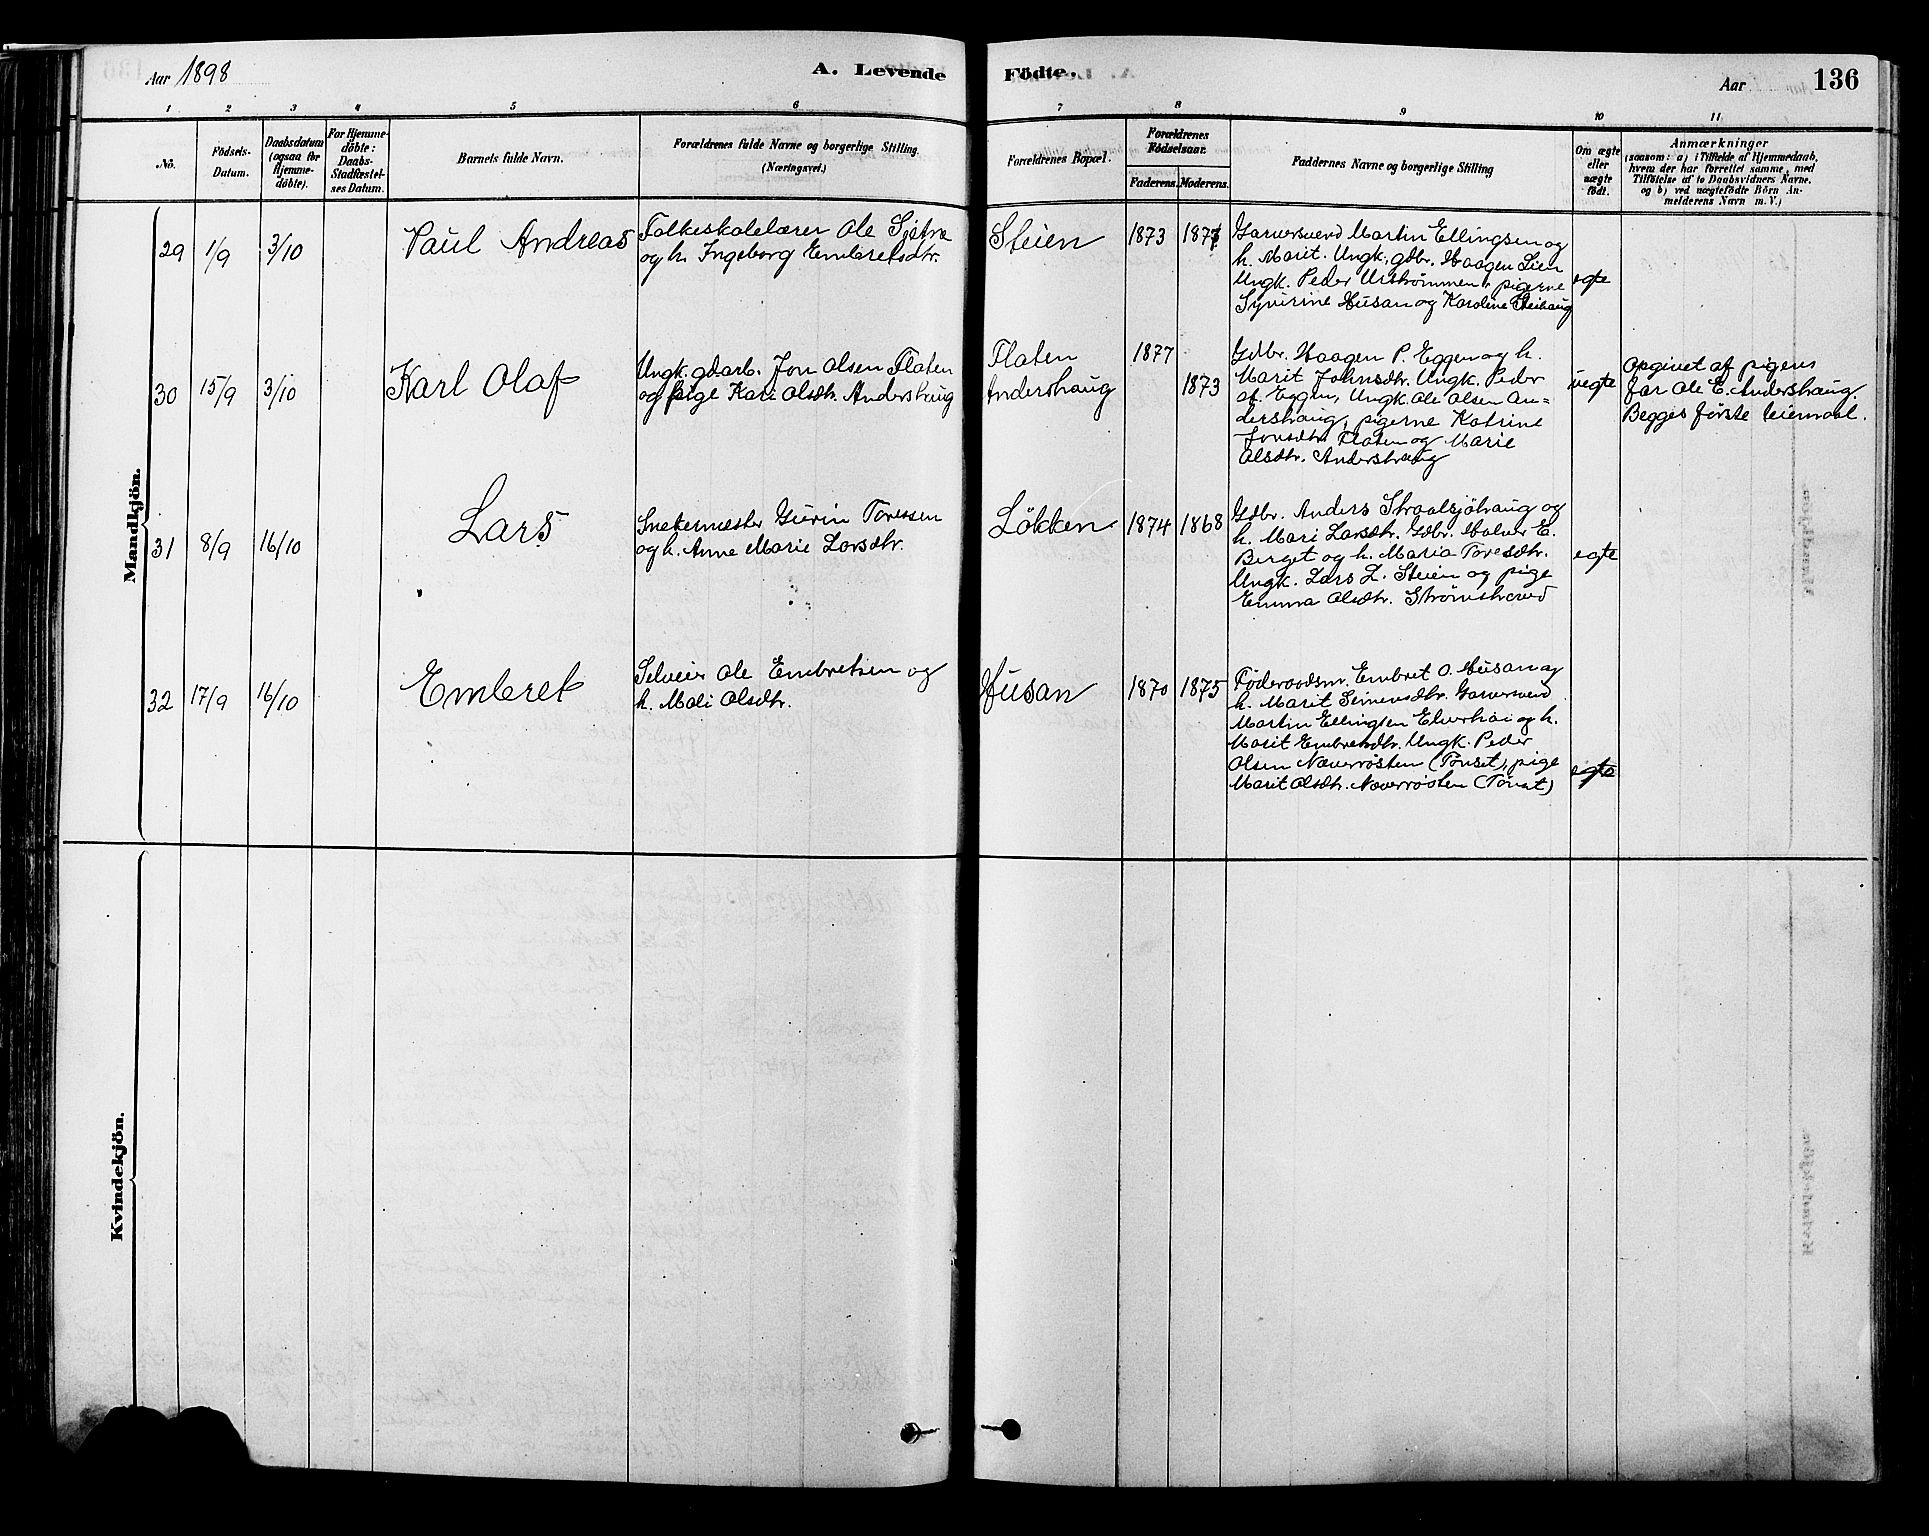 Aar 1898
A. Levende
Födte.
Aar
136
1 2 3 4 5 6 7 8 9 10 11
No.
Födsels-
Datum.
Daabsdatum
(ogsaa for
Hjemme-
döbte).
For Hjemme-
döbte:
Daabs-
Stadfæstel-
ses Datum.
Barnets fulde Navn.
Forældrenes fulde Navne og borgerlige Stilling.
(Næringsvei.)
Forældrenes Bopæl.
Forældrenes
Födselsaar.
Faderens. Moderens.
Faddernes Navne og borgerlige Stilling
Om ægte
eller
uægte
födt.
Anmærkninger
(saasom: a) i Tilfælde af Hjemmedaab,
hvem der har forrettet samme, med
Tilföielse af to Daabsvidners Navne,
og b) ved uægtefödte Börn An-
melderens Navn m. V.)
Mandkjön.
29 1/9 3/10
Paul Andreas
Folkeskolelærer Ole
og h. Ingeborg Embretsdtr.
Steien
1873 1871
Garversvend Martin Ellingsen og
h. Marit. Ungk. gdbr. Haagen Lien
Ungk. Peder Urstrømmen, pigerne
Syverine Husan og Karoline Steihaug
egte
30 15/9 3/10
Karl Olaf
Ungk. gdarb. Jon Olsen Flaten
og pige Kari Olsdtr. Andershaug
Flaten
Andershaug
1877
1873
Gdbr. Haagen P. Eggen og h.
Marit Johnsdtr. Ungk. Peder
af. Eggen, Ungk. Ole Olsen An-
dershaug, pigerne Katrine
Jonsdtr. Flaten og Marie
Olsdtr. Andershaug
uegte
Opgivet af pigens
far Ole E. Andershaug.
Begges første leiermaal.
31 8/9 16/10
Lars
Snekermester Gurin Toressen
og h. Anne Marie Larsdtr.
Løkken
1874 1868
Gdbr. Anders Straalsjøhaug og
h. Mari Larsdtr. Gdbr. Halvor E.
Berget og h. Maria Toresdtr.
Ungk. Lars L. Steien og pige
Emma Olsdtr.
egte
32 17/9 16/10
Embret
Selveier Ole Embretsen og
h. Mali Olsdtr.
Husan
1870 1875
Føderaadsm. Embret O. Husan og
h. Marit Simensdtr. Garversvend
Martin Ellingsen Elverhøi og h.
Marit Embretsdtr. Ungk. Peder
Olsen Næverrøsten (Tønset), pige
Marit Olsdtr. Næverrøsten (Tønset)
egte
Kvindekjön.